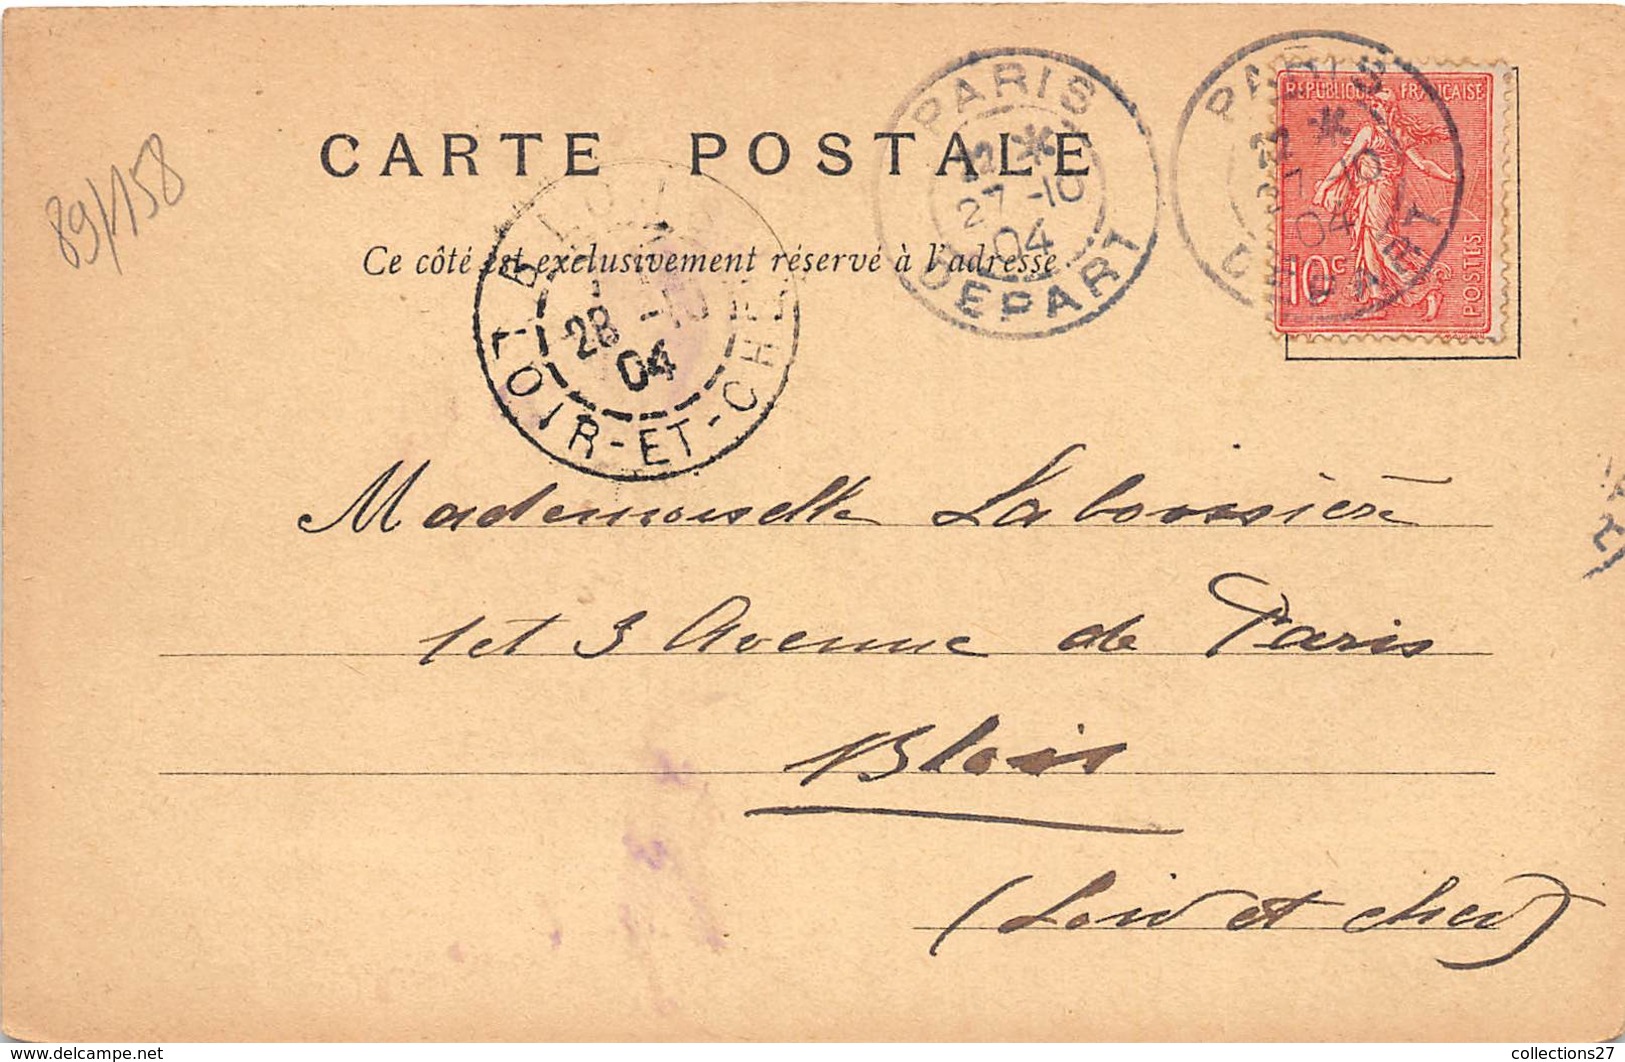 CARTE POSTALE
Ce côté est exclusivement réservé à l'adresse
89/158
PARIS
22 *
27 -10
04
DEPART
PARIS
22 *
27 -10
04
DEPART
REPUBLIQUE FRANÇAISE
10c
POSTES
BLOIS
28 -10
04
LOIR-ET-CHER
Mademoiselle Laboissière
1 et 3 Avenue de Paris
Blois
(Loir et cher)
www.delcampe.net
collections27